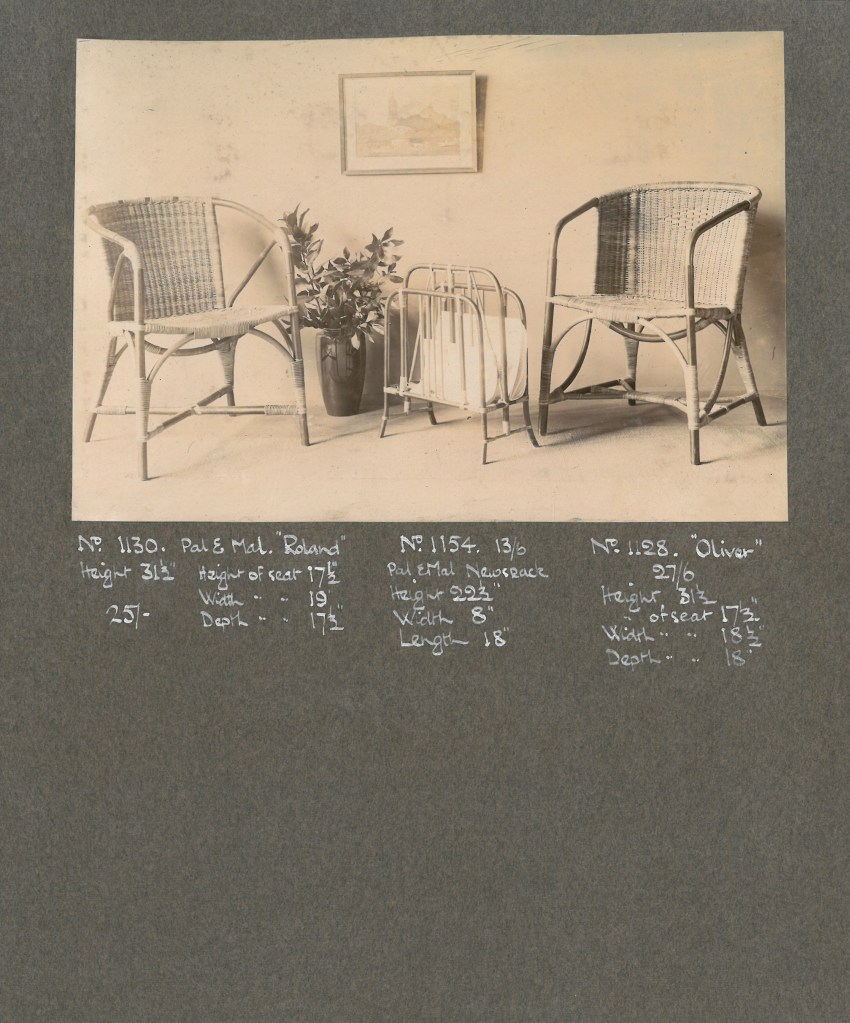 Nº 1130. Pal & Mal. "Roland"
Height 31½" Height of seat 17½"
Width " " 19"
25/- Depth " " 17½"
Nº 1154. 13/6
Pal & Mal Newsrack
Height 22½"
Width 8"
Length 18"
Nº 1128. "Oliver"
27/6
Height 31½
" of seat 17½"
Width " " 18½"
Depth " " 18"